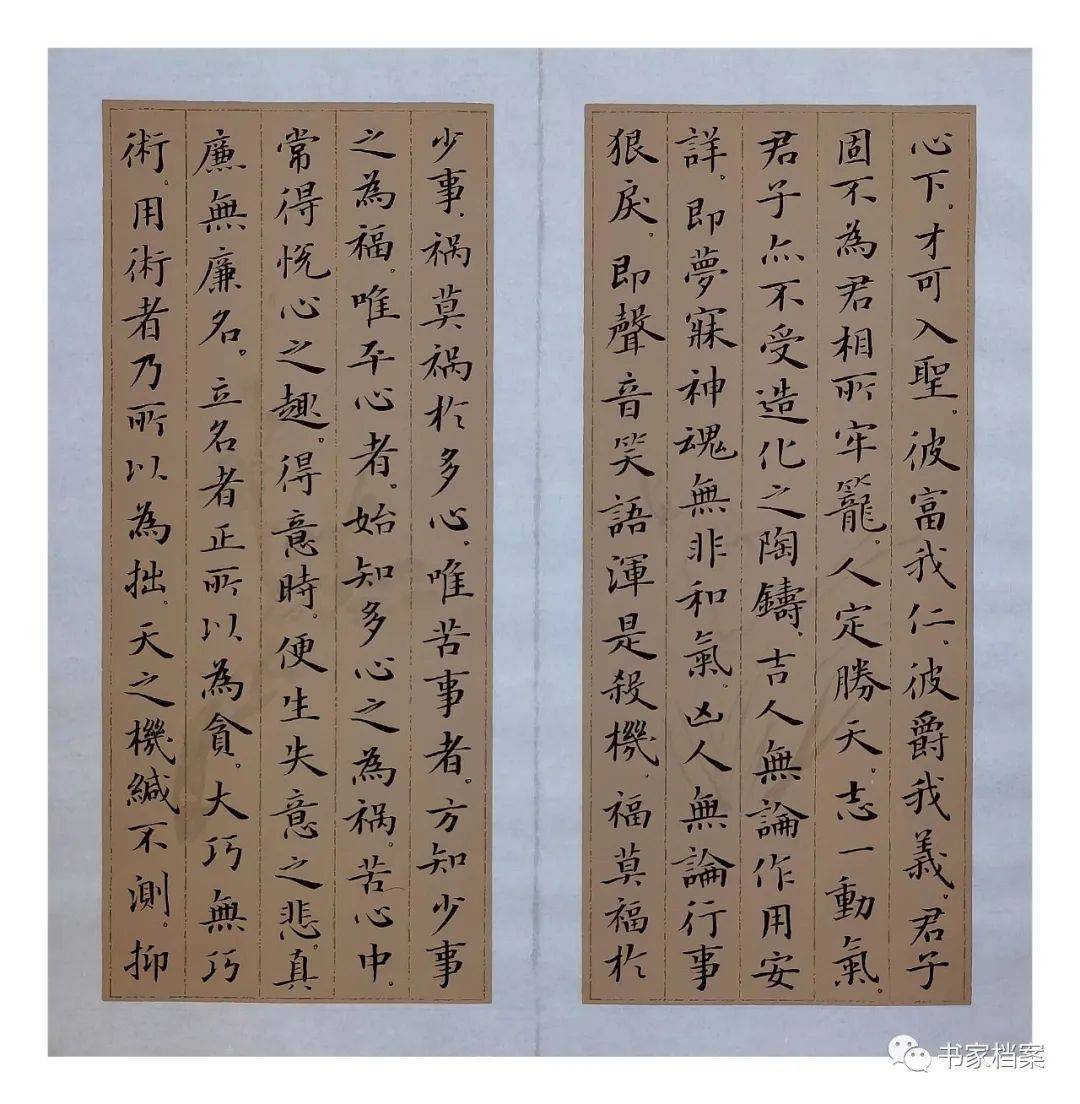 心下。才可入聖。彼富我仁。彼爵我義。君子
固不為君相所牢籠。人定勝天。志一動氣。
君子亦不受造化之陶鑄。吉人無論作用安
詳。即夢寐神魂無非和氣。凶人無論行事
狠戾。即聲音笑語渾是殺機。福莫福於
少事。祸莫祸於多心。唯苦事者。方知少事
之為福。唯平心者。始知多心之為祸。苦心中。
常得悦心之趣。得意時。便生失意之悲。真
廉無廉名。立名者正所以為貪。大巧無巧
術。用術者乃所以為拙。天之機緘不測。抑
书家档案